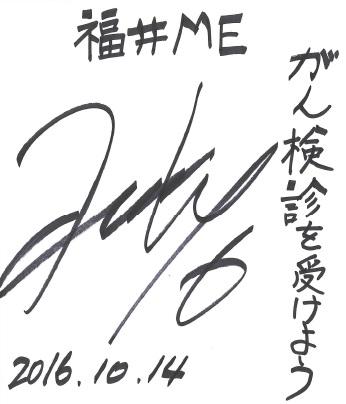 福井ME
がん検診を受けよう
6
2016.10.14